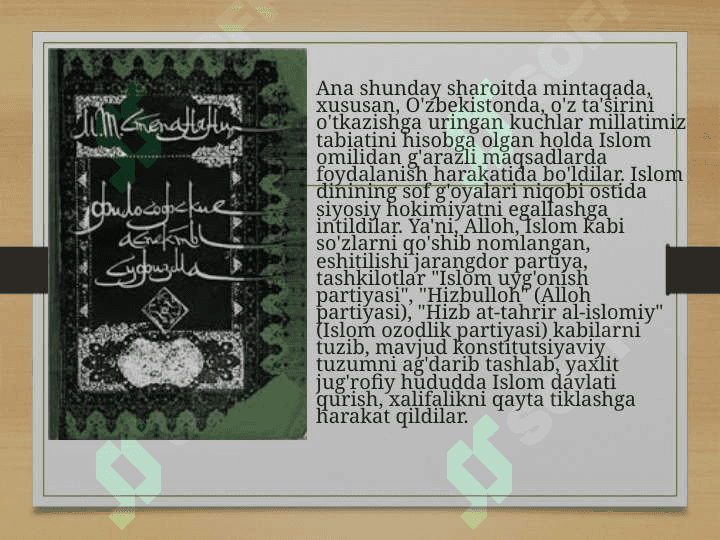 М.Т. Степанянц
философские
аспекты
суфизма
Ana shunday sharoitda mintaqada,
xususan, O'zbekistonda, o'z ta'sirini
o'tkazishga uringan kuchlar millatimiz
tabiatini hisobga olgan holda Islom
omilidan g'arazli maqsadlarda
foydalanish harakatida bo'ldilar. Islom
dinining sof g'oyalari niqobi ostida
siyosiy hokimiyatni egallashga
intildilar. Ya'ni, Alloh, Islom kabi
so'zlarni qo'shib nomlangan,
eshitilishi jarangdor partiya,
tashkilotlar "Islom uyg'onish
partiyasi", "Hizbulloh" (Alloh
partiyasi), "Hizb at-tahrir al-islomiy"
(Islom ozodlik partiyasi) kabilarni
tuzib, mavjud konstitutsiyaviy
tuzumni ag'darib tashlab, yaxlit
jug'rofiy hududda Islom davlati
qurish, xalifalikni qayta tiklashga
harakat qildilar.